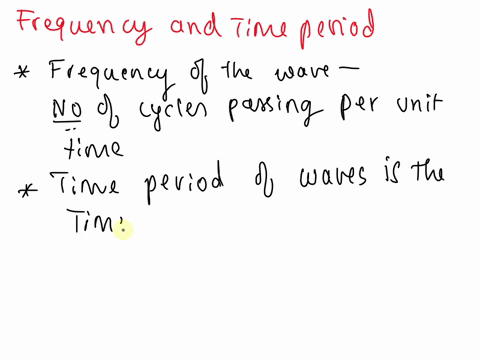 Frequency and Time period
* Frequency of the wave —
No of cycles passing per unit
time
* Time period of waves is the